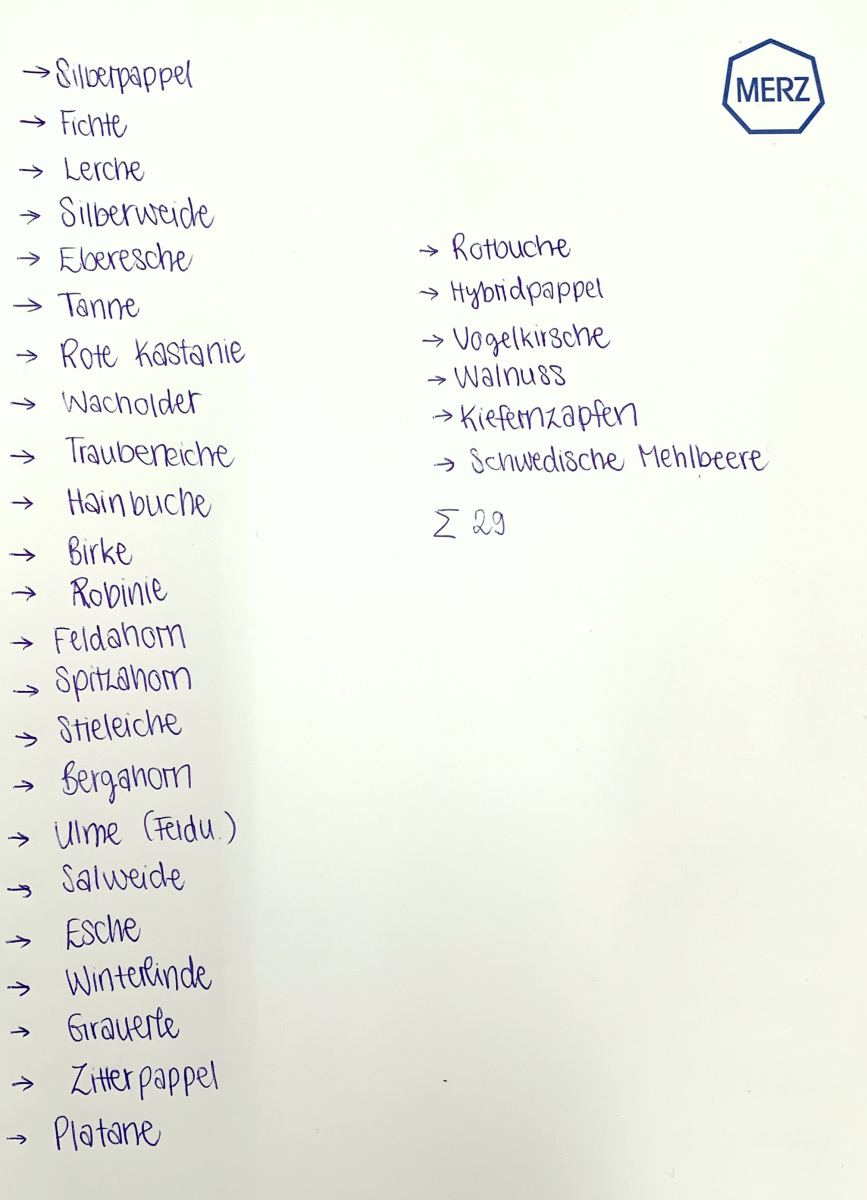 → Silberpappel
→ Fichte
→ Lerche
→ Silberweide
→ Eberesche
→ Tanne
→ Rote Kastanie
→ Wacholder
→ Traubeneiche
→ Hainbuche
→ Birke
→ Robinie
→ Feldahorn
→ Spitzahorn
→ Stieleiche
→ Bergahorn
→ Ulme (Feldu.)
→ Salweide
→ Esche
→ Winterlinde
→ Grauerle
→ Zitterpappel
→ Platane
MERZ
→ Rotbuche
→ Hybridpappel
→ Vogelkirsche
→ Walnuss
→ Kiefernzapfen
→ Schwedische Mehlbeere
Σ 29